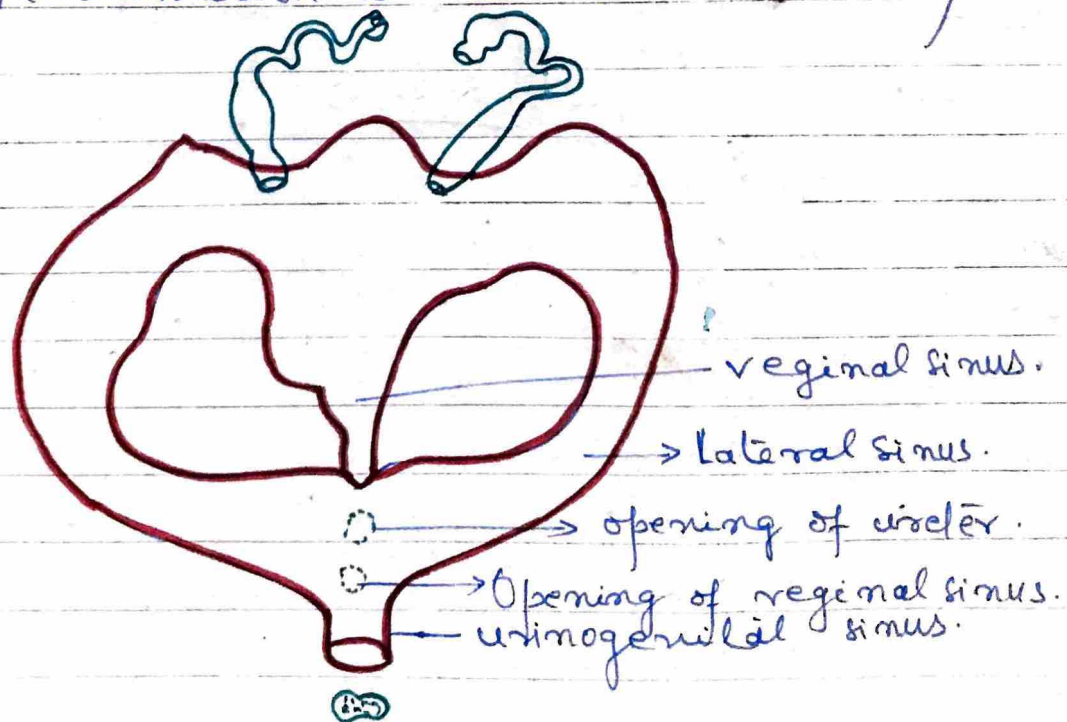 veginal sinus.
Lateral sinus.
opening of ureter.
Opening of veginal sinus.
urinogenital sinus.